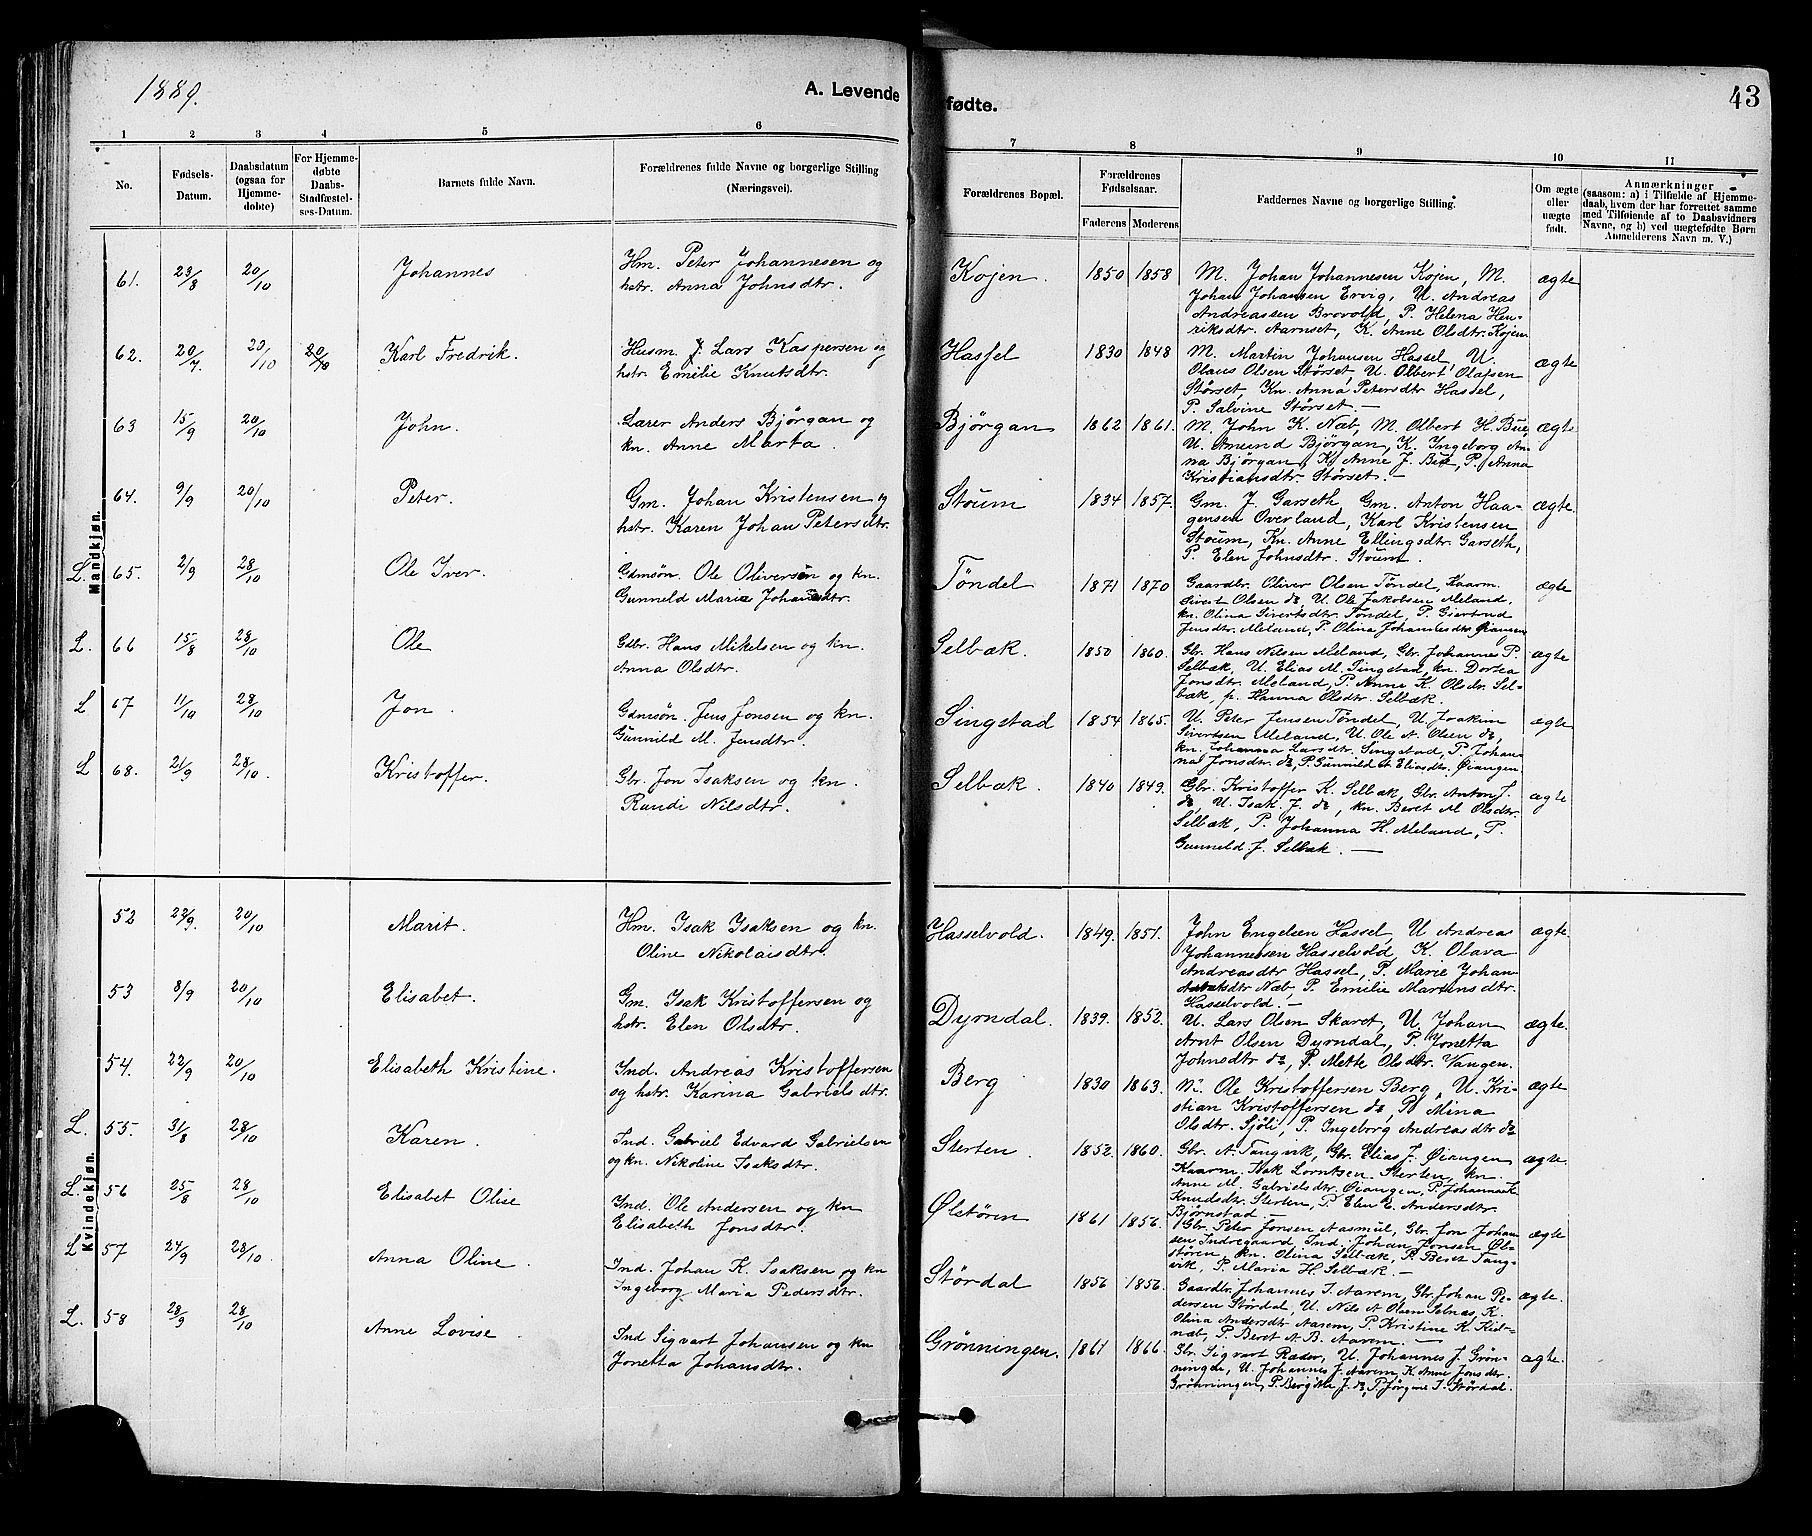 1889.
A. Levende
fødte.
43
1 2 3 4 5 6 7 8 9 10 11
No.
Fødsels-Datum.
Daabsdatum (ogsaa for Hjemmedøbte)
For Hjemmedøbte Daabs-Stadfæstelses-Datum.
Barnets fulde Navn.
Forældrenes fulde Navne og borgerlige Stilling (Næringsvei).
Forældrenes Bopæl.
Forældrenes Fødselsaar.
Faderens Moderens
Faddernes Navne og borgerlige Stilling.
Om ægte eller uægte født.
Anmærkninger (saasom: a) i Tilfælde af Hjemmedaab, hvem der har forrettet samme med Tilføiende af to Daabsvidners Navne, og b) ved uægtefødte Børn Anmelderens Navn m. V.)
Mandkjøn.
61. 23/8 20/10 Johannes Hm. Peter Johannesen og Kojen. 1850 1858 M. Johan Johannesen Kojen, M. ægte
hstr. Anna Johnsdtr. Johan Johansen Ervig, U. Andreas
Andreassen Brovold, P. Helena Hen-
riksdtr. Aarnset, K. Anne Olsdtr. Kojen
62. 20/7. 20/10 Karl Fredrik. Husm. Lars Kaspersen og Hassel 1830 1848 M. Martin Johansen Hassel, U. ægte
hstr. Emilie Knutsdtr. Olaus Olsen Størset, U. Olbert Olafsen
Størset, Kn. Anna Petersdtr Hassel,
P. Salvine Størset. —
63 15/9 20/10 John. Lærer Anders Bjørgan og Bjørgan 1862 1861. M. John K. Næb, M. Olbert H. Bue ægte
kn. Anne Marta. U. Amund Bjørgan, K. Ingeborg An-
na Bjørgan, K. Anne J. Bue, P. Anna
Kristiansdtr. Størset. —
64. 9/9 20/10 Peter. Gm. Johan Kristensen og Stoum 1834 1857. Gm. J. Garseth, Gm. Anton Haa- ægte
hstr. Karen Johan Petersdtr. gensen Overland, Karl Kristensen
Stoum, Kn. Anne Ellingsdtr. Garseth,
P. Elen Johnsdtr. Stoum.
L. 65. 2/9 28/10 Ole Iver. Gdmsøn. Ole Oliversen og kn. Tøndel 1871 1870 Gaardbr. Oliver Olsen Tøndel, Kaarm. ægte
Gunneld Maria Sivert Olsen do, U. Ole Jakobsen Meland,
kn. Olina Sivertsdtr. Tøndel, P. Gjertrud
Jensdtr. Meland, P. Olina Johannesdtr Øiangen
L. 66 15/8 28/10 Ole Gdbr. Hans Mikelsen og kn. Selbæk. 1850 1860. Gbr. Hans Nilsen Meland, Gbr. Johannes P. ægte
Anna Olsdtr. Selbæk, U. Elias M. Singstad, kn. Dortea
Jonsdtr. Meland, P. Anne K. Olsdtr. Sel-
bæk, p. Hanna Olsdtr. Selbæk.
L 67 11/10 28/10 Jon. Gdmsøn. Jens Jonsen og kn. Singstad 1854 1865. U. Peter Jensen Tøndel, U. Joakim ægte
Gunnild M. Jensdtr. Sivertsen Meland, U. Ole A. Olsen do,
kn. Johanna Larsdtr. Singstad, P. Johan-
na Jonsdtr. do, P. Gunnild Eliasdtr. Øiangen
L 68. 21/9 28/10. Kristoffer. Gbr. Jon Isaksen og kn. Selbæk. 1840 1849. Gbr. Kristoffer K. Selbæk, Gbr. Anton J. ægte
Randi Nilsdtr. do, U. Isak J. do, kn. Beret M Olsdtr.
Selbæk, P. Johanna H. Meland, P.
Gunneld J. Selbæk. —
Kvindekjøn.
52 22/9. 20/10 Marit. Hm. Isak Isaksen og kn. Hasselvold. 1849. 1851. John Engelsen Hassel, U Andreas ægte.
Oline Nikolaisdtr. Johannesen Hasselvold, K. Olava
Andreasdtr Hassel, P. Marie Johan
Næb, P. Emilie Martinsdtr.
Hasselvold. —
53 8/9 20/10 Elisabet. Gm. Isak Kristoffersen og Dyrndal. 1839. 1852. U. Lars Olsen Skaret, U. Johan ægte.
hstr. Elen Olsdtr. Arnt Olsen Dyrndal, P. Jonetta
Johnsdtr do, P. Mette Olsdtr. Vangen.
54. 22/9 20/10 Elisabeth Kristine. Ind. Andreas Kristoffersen Berg 1830 1863. Ole Kristoffersen Berg, U. Kri- ægte
og hstr. Karina Gabrielsdtr. stian Kristoffersen do, P. Mina
Olsdtr. Sjøli, P. Ingeborg Andreasdtr do
L. 55. 31/8 28/10 Karen. Ind. Gabriel Edvard Gabrielsen Sterten. 1852. 1860. Gbr. A. Tangvik, Gbr. Elias J. Øiangen ægte.
og kn. Nikoline Isaksdtr. Kaarm. Isak Lorntsen Sterten, kn.
Anne M. Gabrielsdtr. Øiangen, P. Johanna K
Knudsdtr. Sterten, P. Elen E. Andersdtr.
Bjørnstad. —
L. 56 25/8 28/10 Elisabet Olise Ind. Ole Andersen og kn Ølstøren 1861 1856. Gbr. Peter Jonsen Aasmul, Gbr. Jon Johan ægte
Elisabeth Jonsdtr. sen Indregaard, Ind. Johan Jonsen Øl-
støren, kn. Olina Selbæk, P. Beret Tang-
vik, P. Maria H. Selbæk. —
L 57 24/9 28/10. Anna Oline. Ind. Johan K. Isaksen og kn Størdal 1856 1856. Gaardbr. Johannes J. Aarem, Gbr. Johan Pe- ægte.
Ingeborg Maria Pedersdtr. dersen Størdal, U. Nils A Olsen Selnæs, K.
Olina Andersdtr. Aarem, P Kristine K. Kiel-
næb, P. Beret A. B. Aarem. —
L. 58 28/9 28/10 Anne Lovise. Ind Sigvart Johansen og kn Grønningen. 1861 1866. Gbr. Sigvart Ræder, U. Johannes J. Grøn- ægte.
Jonetta Johansdtr. ningen, U. Johannes J. Aarem, K. Anne Jonsdtr.
Grønningen, P. Bergitte J. do, P. Jørgine J. Størdal.